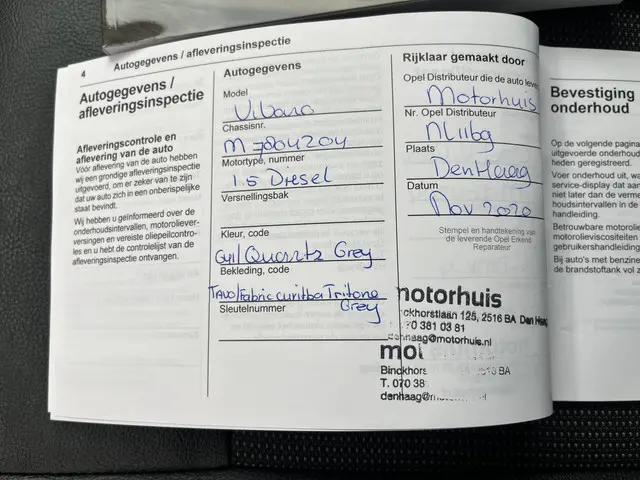 4 Autogegevens / afleveringsinspectie
Autogegevens /
afleveringsinspectie
Afleveringscontrole en
aflevering van de auto
Vóór aflevering van de auto hebben
wij een grondige afleveringsinspectie
uitgevoerd, om er zeker van te zijn
dat uw auto zich in een onberispelijke
staat bevindt.
Wij hebben u geïnformeerd over de
onderhoudsintervallen, motoroliever-
versingen en vereiste oliepeilcontro-
les en u hebt de controlelijst van de
afleveringsinspectie ontvangen.
Autogegevens
Model
Vivaro
Chassisnr.
M7804204
Motortype, nummer
1.5 Diesel
Versnellingsbak
Kleur, code
Quartz Grey
Bekleding, code
Fabric curitba Tritone
Grey
Sleutelnummer
Rijklaar gemaakt door
Opel Distributeur die de auto leve
Motorhuis
Nr. Opel Distributeur
Plaats
Den Haag
Datum
Nov 2020
Stempel en handtekening van
de leverende Opel Erkend
Reparateur
motorhuis
ckhorstlaan 125, 2516 BA Den Haag
70 381 03 81
denhaag@motorhuis.nl
mot
Binckhors 2516 BA
T. 070 38
denhaag@motor
Bevestiging
onderhoud
Op de volgende pagina
uitgevoerde onderhoud
heden geregistreerd.
Voer onderhoud uit, wa
service-display dat aan
niet later dan de verme
houdsintervallen in de
handleiding.
Betrouwbare motorolie
motorolieviscositeiten
gebruikershandleiding
Bij auto's met benzine
de brandstoftank vol z